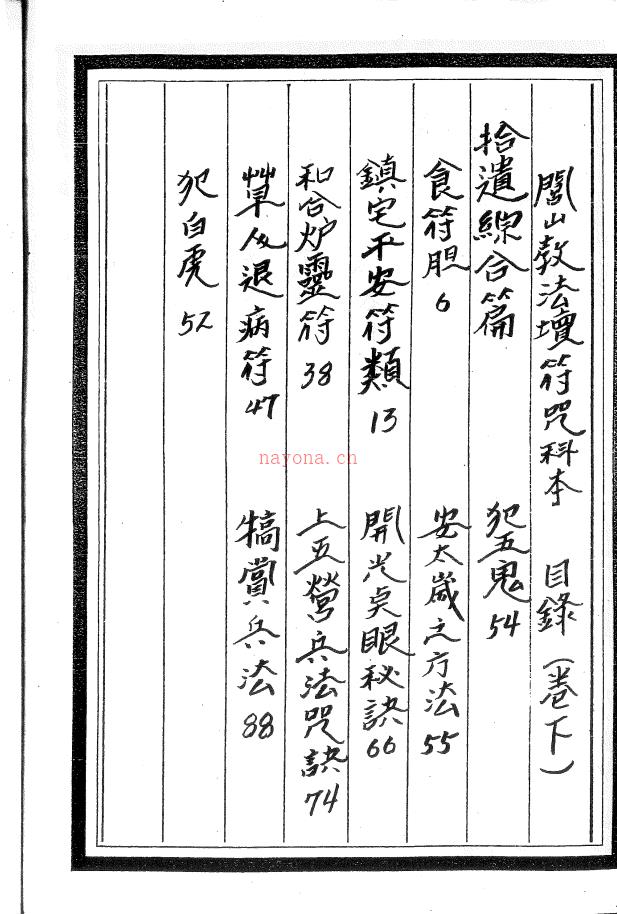 閭山教法壇符咒科本　目錄（卷下）
拾遺綜合篇
食符胆 6
鎮宅平安符類 13
和合炉靈符 38
草人退病符 47
犯白虎 52
犯五鬼 54
安太歲之方法 55
開光点眼秘訣 66
上五營兵法咒訣 74
犒賞兵法 88
nayona.cn